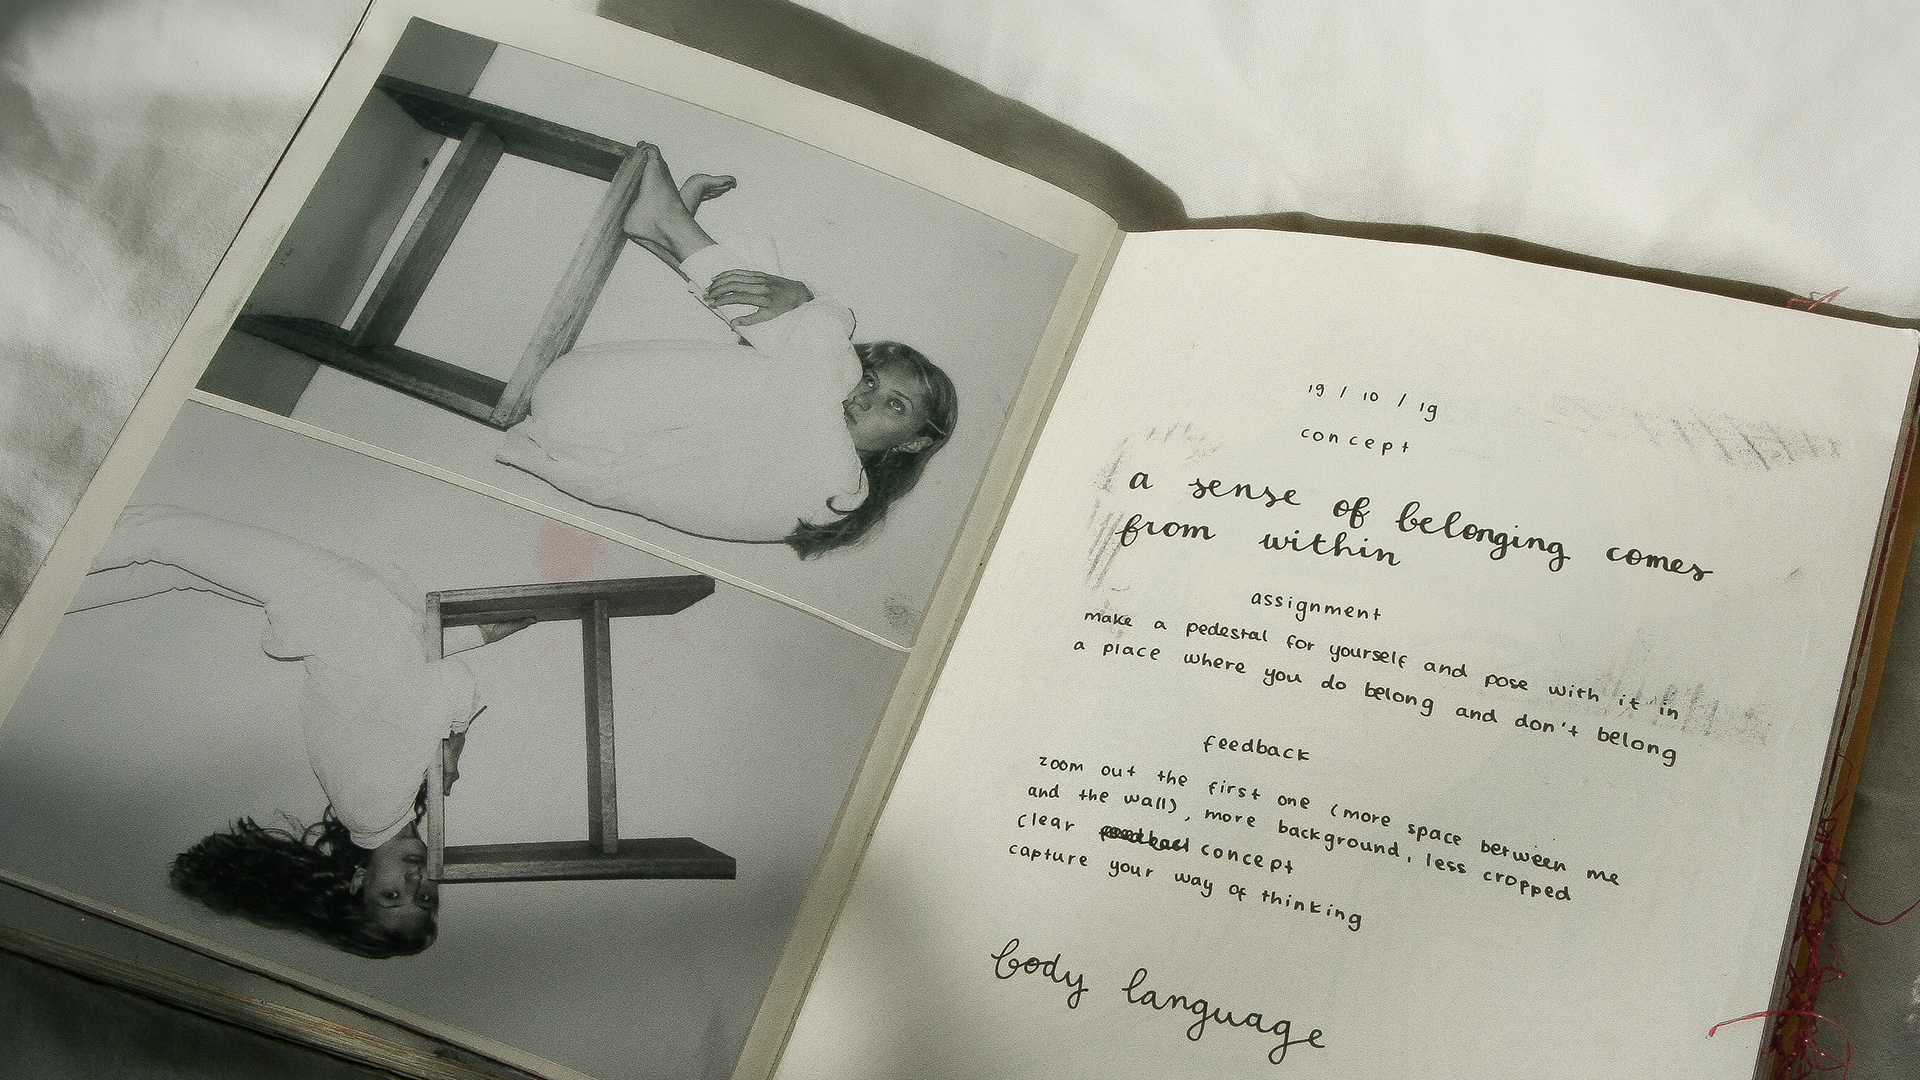 19 / 10 / 19
concept
a sense of belonging comes
from within
assignment
make a pedestal for yourself and pose with it in
a place where you do belong and don't belong
feedback
zoom out the first one (more space between me
and the wall), more background, less cropped
clear concept
capture your way of thinking
body language